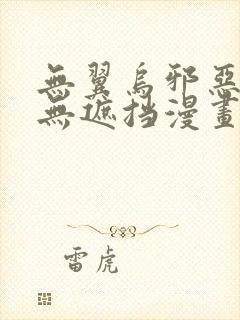 無翼烏邪惡
無遮挡漫畫
雷虎